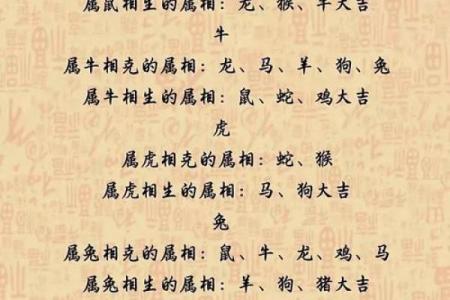 属鼠相生的属相：龙、猴、牛大吉
牛
属牛相克的属相：龙、马、羊、狗、兔
属牛相生的属相：鼠、蛇、鸡大吉
虎
属虎相克的属相：蛇、猴
属虎相生的属相：马、狗大吉
兔
属兔相克的属相：鼠、牛、龙、鸡、马
属兔相生的属相：羊、狗、猪大吉